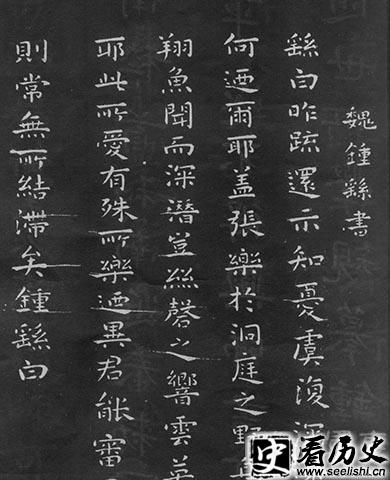 魏鍾繇書
繇白昨疏還示知憂虞復深
何迺爾耶蓋張樂於洞庭之野
翔魚聞而深潛豈絲磬之響雲英
耶此所愛有殊所樂迺異君能審
則常無所結滯矣鍾繇白
史看历史
www.seelishi.cn